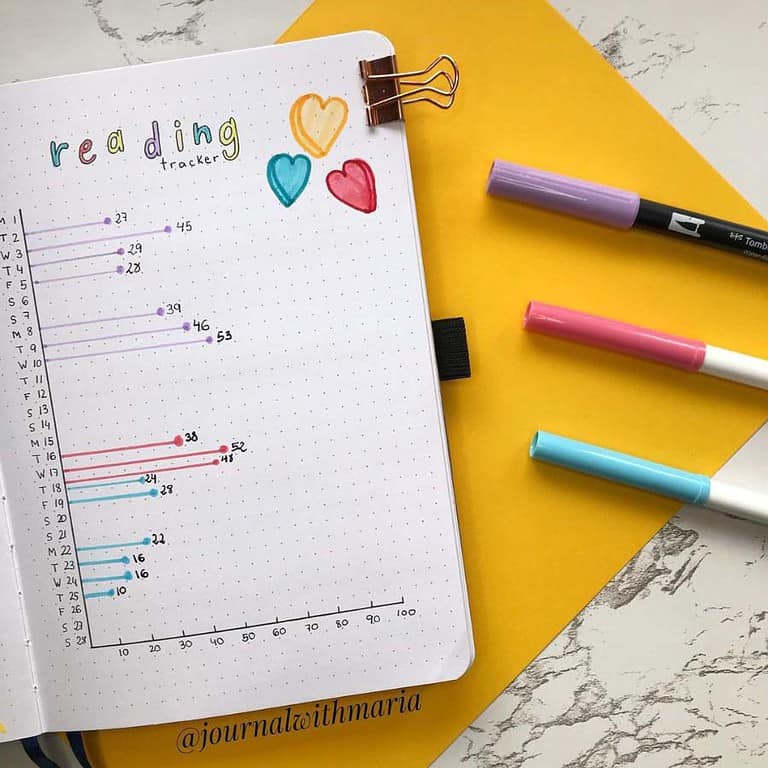 reading
tracker
M 1 27
T 2 45
W 3 29
T 4 28
F 5
S 6
S 7 39
M 8 46
T 9 53
W 10
T 11
F 12
S 13
S 14
M 15 38
T 16 52
W 17 48
T 18 24
F 19 28
S 20
S 21 22
M 22 16
T 23 16
W 24 10
T 25
F 26
S 27
S 28
10 20 30 40 50 60 70 80 90 100
Tomb
@journalwithmaria